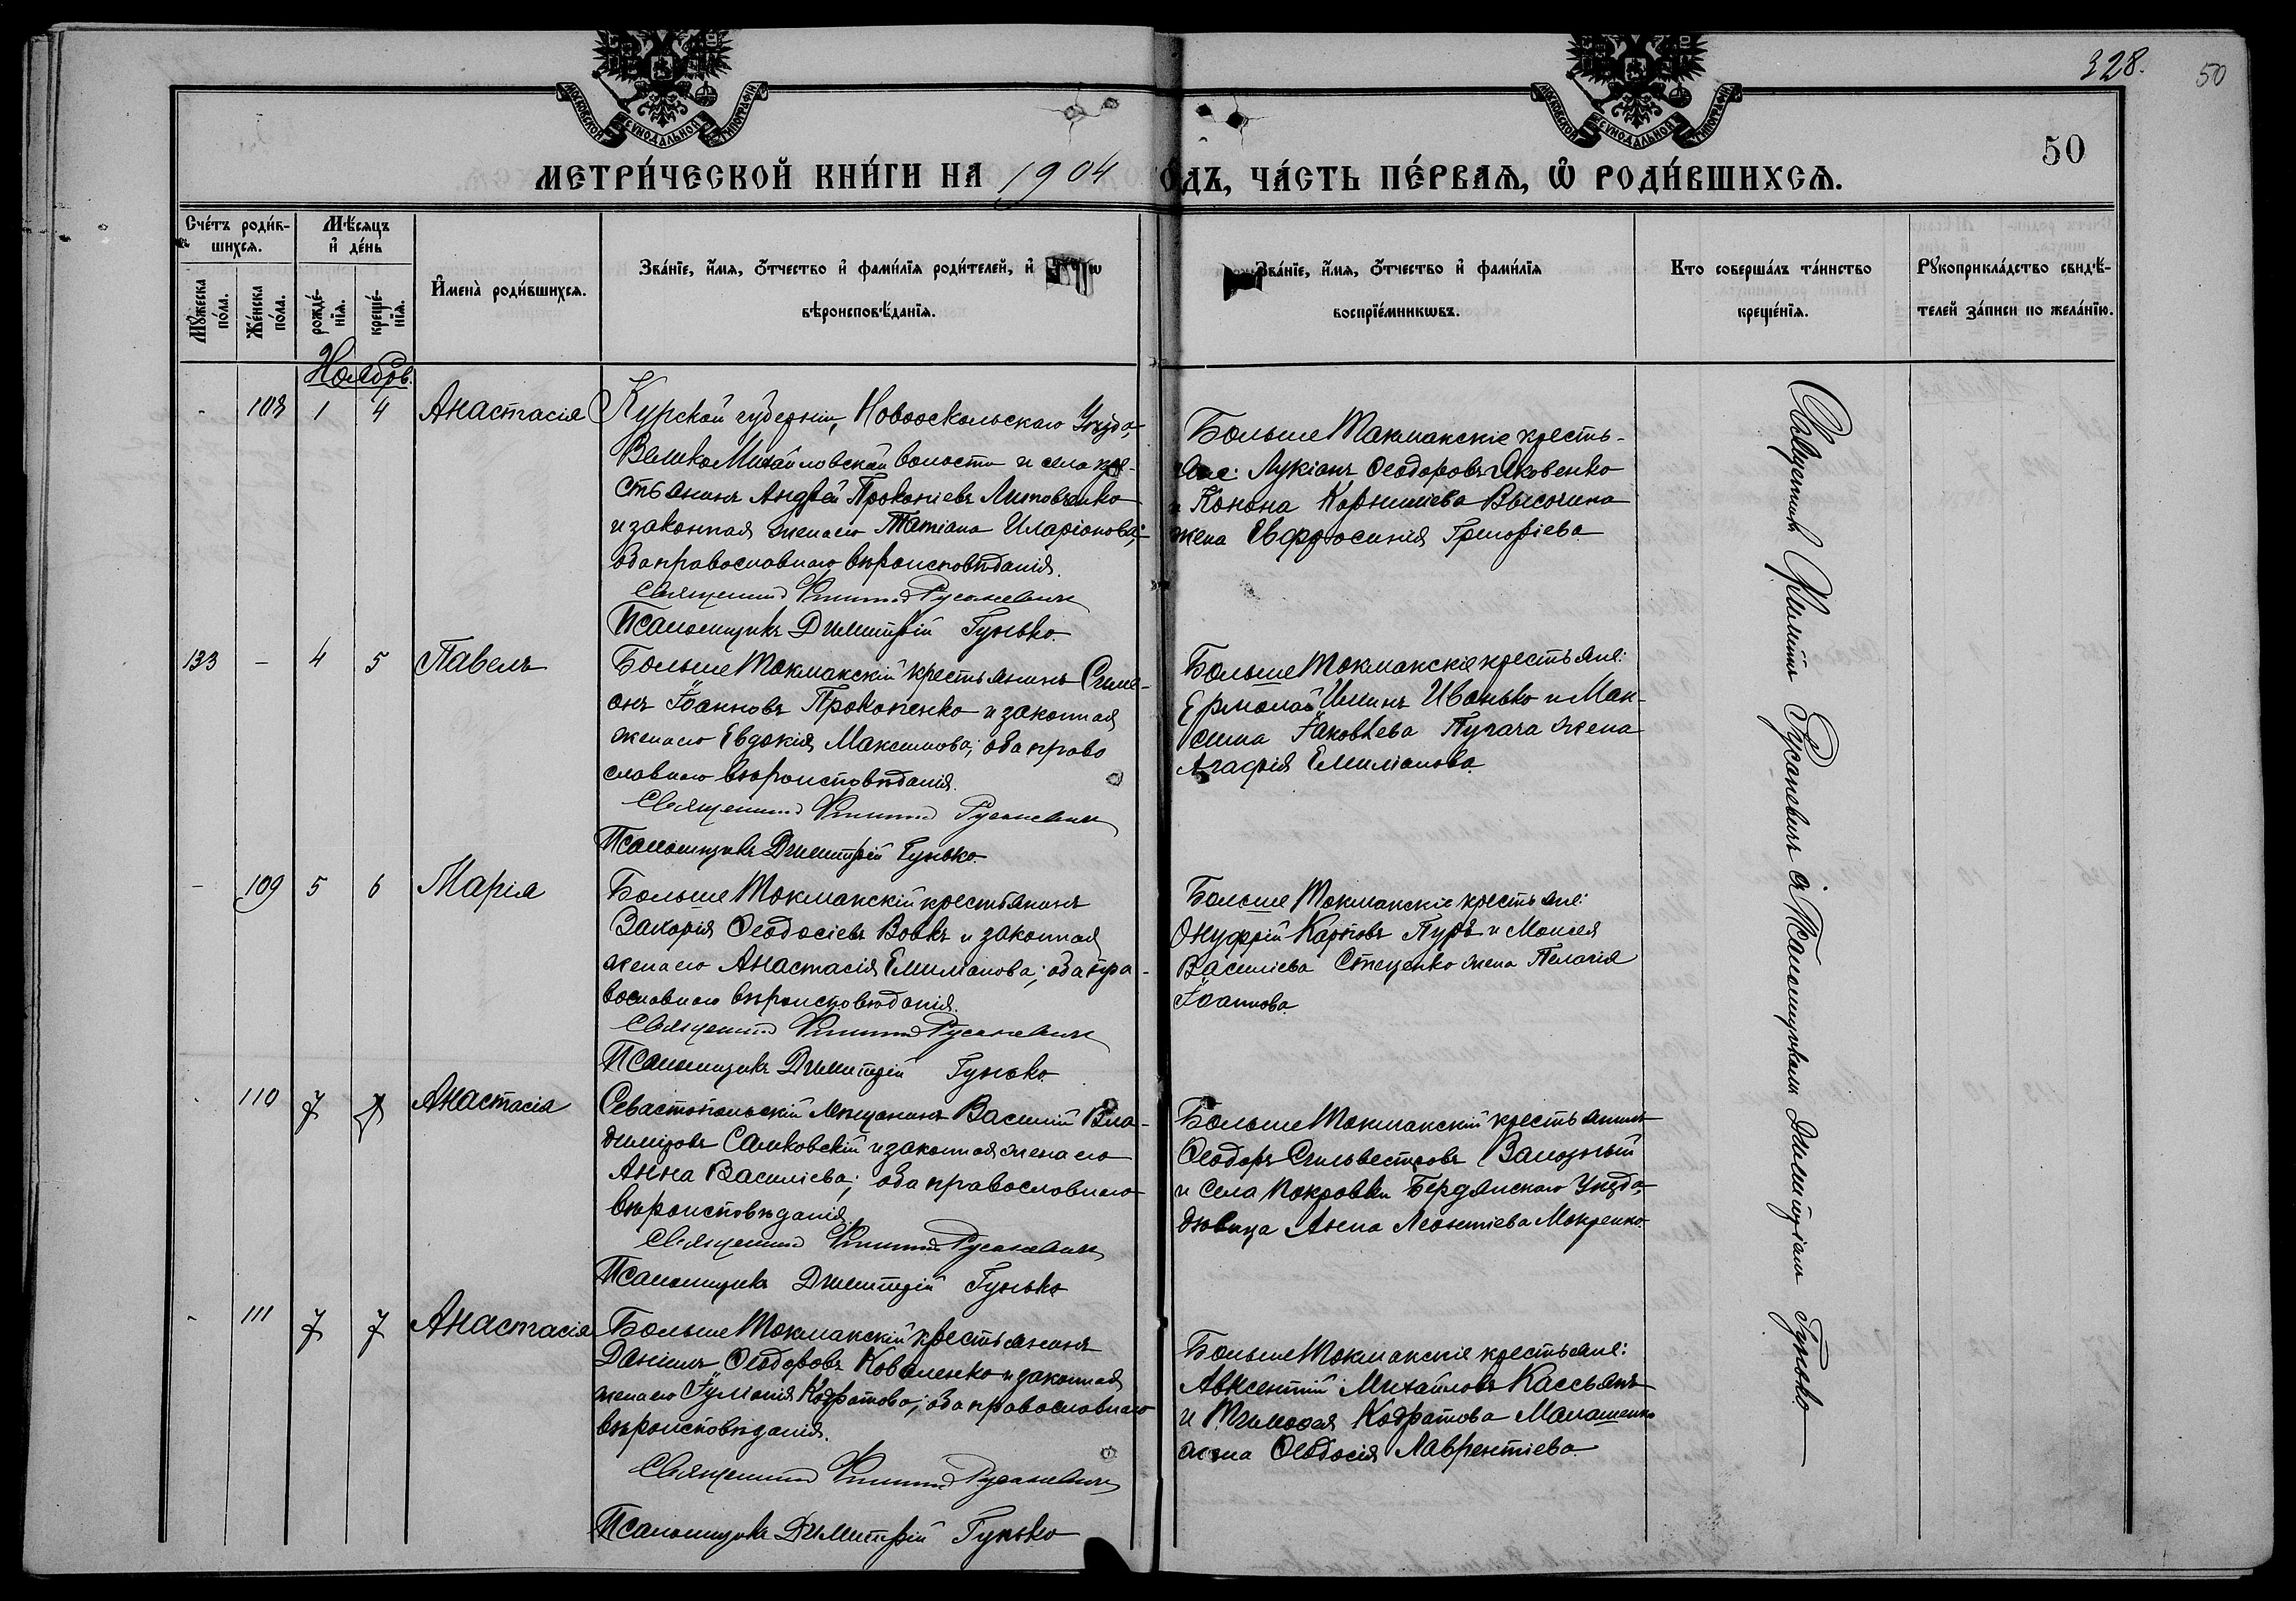 328.
50
МОСКОВСКОЙ СѴНОДАЛЬНОЙ ТИПОГРАФІИ
МОСКОВСКОЙ СѴНОДАЛЬНОЙ ТИПОГРАФІИ
50
МЕТРИ́ЧЕСКОЙ КНИ́ГИ НА 1904 ОДЪ, ЧА́СТЬ ПЕ́РВАЯ, Ѿ РОДИ́ВШИХСЯ.
Счетъ роди́в-
шихся.
Мꙋжеска по́ла.
Же́нска по́ла.
Мѣсяцъ и де́нь
рожде́-нїя.
креще́-нїя.
Имена̀ роди́вшихся.
Зва́нїе, и́мя, о́тчество и фами́лїя роди́телей, и
вѣроисповѣданїя.
Зва́нїе, и́мя, о́тчество и фами́лїя
воспрїе́мникωвъ.
Кто соверша́лъ та́инство
креще́нїя.
Рꙋкоприкла́дство свидѣ-
телей за́писи по жела́нїю.
Ноябрь.
- 108 1 4 Анастасія
Курской губерніи, Новооскольскаго Уѣзда,
ВеликоМихайловской волости и села кре-
стьянинъ Андрей Прокопіевъ Литовченко
и законная жена его Татіана Иларіонова;
оба православнаго вѣроисповѣданія.
Священникъ Русаневичъ
Псаломщикъ Димитрій Гунько.
Больше Токмакскіе кресть-
яне: Лукіанъ Ѳеодоровъ Яковенко
и Конона Корниліева Высочина
жена Евфросинія Григоріева
133 - 4 5 Павелъ
Больше Токмакскій крестьянинъ Симе-
онъ Іоанновъ Прокопенко и законная
жена его Евдокія Максимова; оба право
славнаго вѣроисповѣданія.
Священникъ Русаневичъ
Псаломщикъ Димитрій Гунько.
Больше Токмакскіе крестьяне:
Ермолай Иванько и Мак-
сима Іаковлева Пугача жена
Агафія Емиліанова
- 109 5 6 Марія
Больше Токмакскій крестьянинъ
Захарія Ѳеодосіевъ Вовкъ и законная
жена его Анастасія Емиліанова; оба пра-
вославнаго вѣроисповѣданія.
Священникъ Русаневичъ
Псаломщикъ Димитрій Гунько.
Больше Токмакскіе крестьяне:
Онуфрій Карповъ и Моисея
Василіева Стеценко жена Пелагія
Іоаннова.
- 110 7 7 Анастасія
Севастопольскій мѣщанинъ Василій Вла-
диміровъ Самковскій и законная жена его
Анна Василіева; оба православнаго
вѣроисповѣданія.
Священникъ Русаневичъ
Псаломщикъ Димитрій Гунько
Больше Токмакскій крестьянинъ
Ѳеодоръ Сильвестровъ
и села Покровки Бердянскаго Уѣзда,
дѣвица Анна Леонтіева Мокренко.
- 111 7 7 Анастасія
Больше Токмакскій крестьянинъ
Даніилъ Ѳеодоровъ Коваленко и законная
жена его Іуліанія Кодратова; оба православнаго
вѣроисповѣданія.
Священникъ Русаневичъ
Псаломщикъ Димитрій Гунько
Больше Токмакскіе крестьяне:
Авксентій Михайловъ Кассьянъ
и Тимоѳея Кодратова Малашенко
жена Ѳеодосія Лаврентіева
Священникъ Русаневичъ съ Псаломщикомъ Димитріемъ Гунько